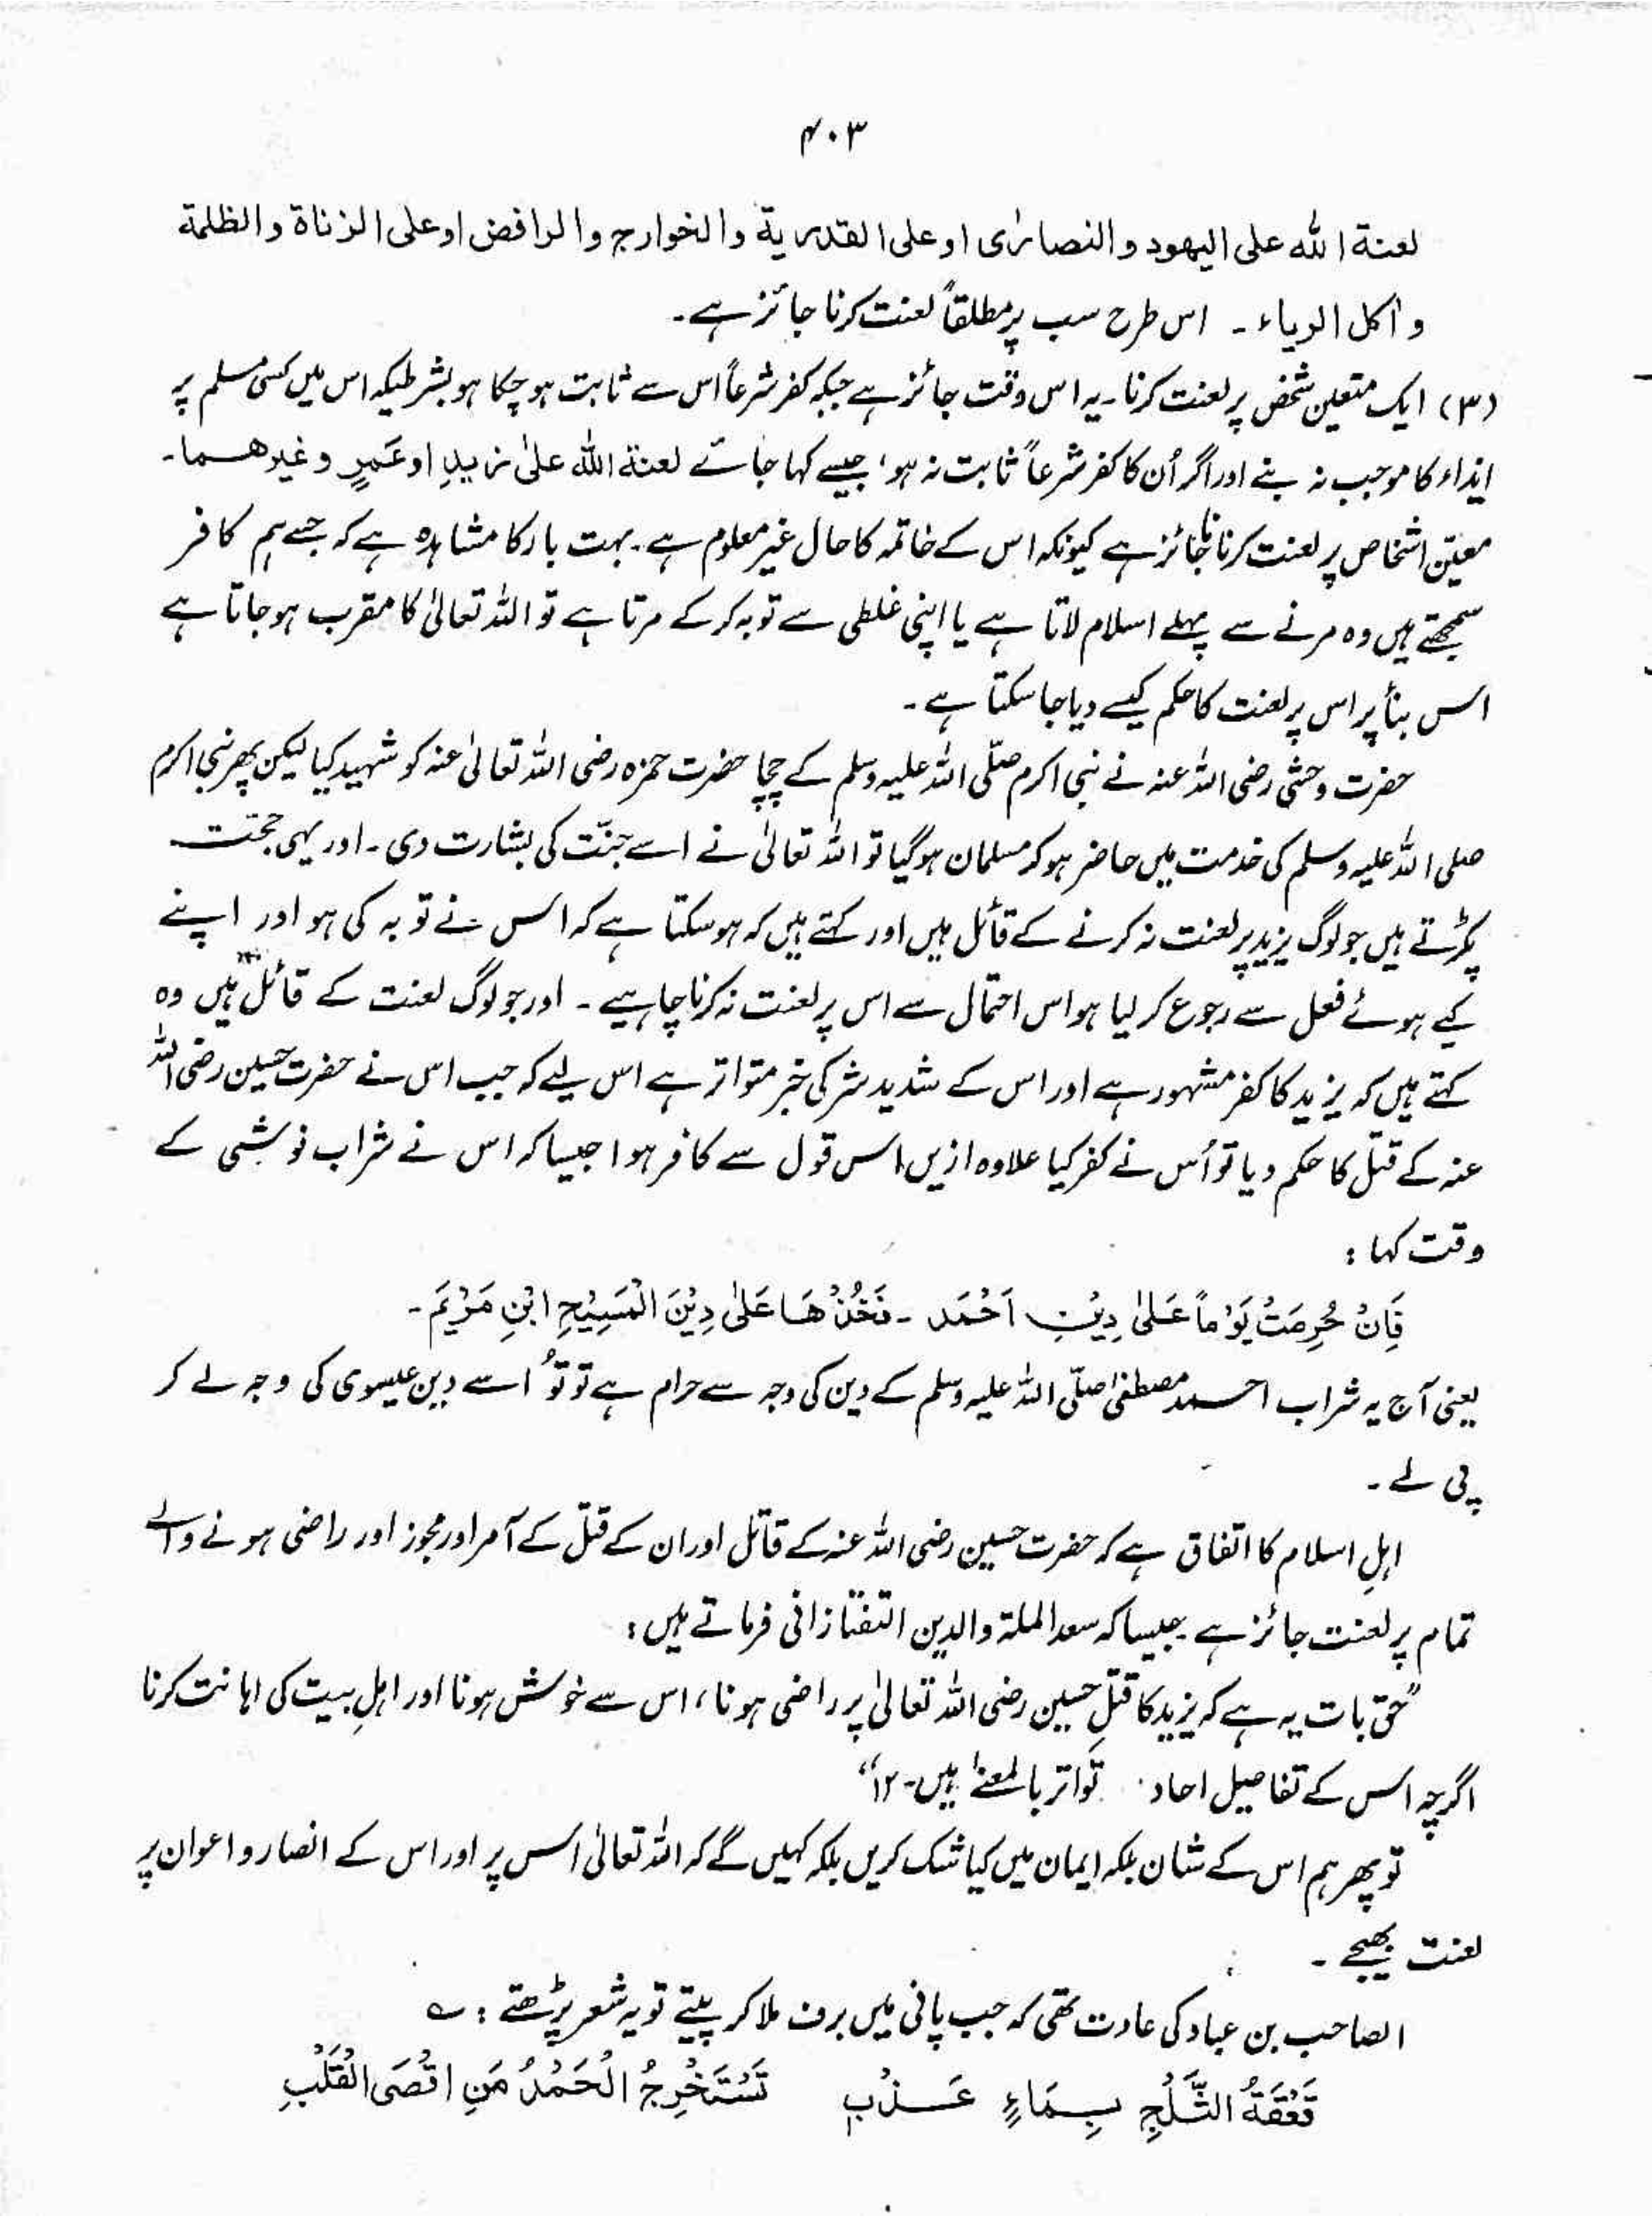 ۴۰۳
لعنة اللہ علی الیھود والنصاریٰ او علی القدریة والخوارج والرافض او علی الزناة والظلمة
واٰکل الرباء ۔ اس طرح سب پر مطلقاً لعنت کرنا جائز ہے۔
(۳) ایک متعین شخص پر لعنت کرنا۔ یہ اس وقت جائز ہے جبکہ کفر شرعاً اس سے ثابت ہو چکا ہو بشرطیکہ اس میں کسی مسلم پر
ایذاء کا موجب نہ بنے اور اگر اُن کا کفر شرعاً ثابت نہ ہو، جیسے کہا جائے لعنة اللہ علیٰ زیدٍ او عَمرٍ وغیرھما۔
معیّن اشخاص پر لعنت کرنا ناجائز ہے کیونکہ اس کے خاتمہ کا حال غیر معلوم ہے۔ بہت بار کا مشاہدہ ہے کہ جسے ہم کافر
سمجھتے ہیں وہ مرنے سے پہلے اسلام لاتا ہے یا اپنی غلطی سے توبہ کرکے مرتا ہے تو اللہ تعالیٰ کا مقرب ہو جاتا ہے
اس بنأ پر اس پر لعنت کا حکم کیسے دیا جا سکتا ہے۔
حضرت وحشی رضی اللہ عنہ نے نبی اکرم صلّی اللہ علیہ وسلم کے چچا حضرت حمزہ رضی اللہ تعالیٰ عنہ کو شہید کیا لیکن پھر نبی اکرم
صلی اللہ علیہ وسلم کی خدمت میں حاضر ہو کر مسلمان ہو گیا تو اللہ تعالیٰ نے اسے جنّت کی بشارت دی۔ اور یہی حجّت
پکڑتے ہیں جو لوگ یزید پر لعنت نہ کرنے کے قائل ہیں اور کہتے ہیں کہ ہو سکتا ہے کہ اس نے توبہ کی ہو اور اپنے
کیے ہوئے فعل سے رجوع کر لیا ہو اس احتمال سے اس پر لعنت نہ کرنا چاہیے ۔ اور جو لوگ لعنت کے قائل ہیں وہ
کہتے ہیں کہ یزید کا کفر مشہور ہے اور اس کے شدید شر کی خبر متواتر ہے اس لیے کہ جب اس نے حضرت حسین رضی اللہ
عنہ کے قتل کا حکم دیا تو اُس نے کفر کیا علاوہ ازیں اس قول سے کافر ہوا جیسا کہ اس نے شراب نوشی کے
وقت کہا :
فَاِنْ حُرِمَتْ یَوْماً عَلیٰ دِیْنِ اَحْمَد ۔ فَخُذْھَا عَلیٰ دِیْنَ الْمَسِیْحِ ابْنِ مَرْیَمَ۔
یعنی آج یہ شراب احمد مصطفیٰ صلّی اللہ علیہ وسلم کے دین کی وجہ سے حرام ہے تو تُو اسے دینِ عیسوی کی وجہ لے کر
پی لے۔
اہلِ اسلام کا اتفاق ہے کہ حضرت حسین رضی اللہ عنہ کے قاتل اور ان کے قتل کے آمر اور مجوز اور راضی ہونے والے
تمام پر لعنت جائز ہے جیسا کہ سعد الملة والدین التفتازانی فرماتے ہیں :
”حق بات یہ ہے کہ یزید کا قتلِ حسین رضی اللہ تعالیٰ پر راضی ہونا، اس سے خوش ہونا اور اہلِ بیت کی اہانت کرنا
اگرچہ اس کے تفاصیل احاد تواتر بالمعنے ہیں۔۱۲“
تو پھر ہم اس کے شان بلکہ ایمان میں کیا شک کریں بلکہ کہیں گے کہ اللہ تعالیٰ اس پر اور اس کے انصار و اعوان پر
لعنت بھیجے ۔
الصاحب بن عباد کی عادت تھی کہ جب پانی میں برف ملا کر پیتے تو یہ شعر پڑھتے : ؎
قَعْقَةُ الثَّلْجِ بِمَاءٍ عَذْبٍ تَسْتَخْرِجُ الْحَمْدُ مَنِ اقْصَی الْقَلْبِ